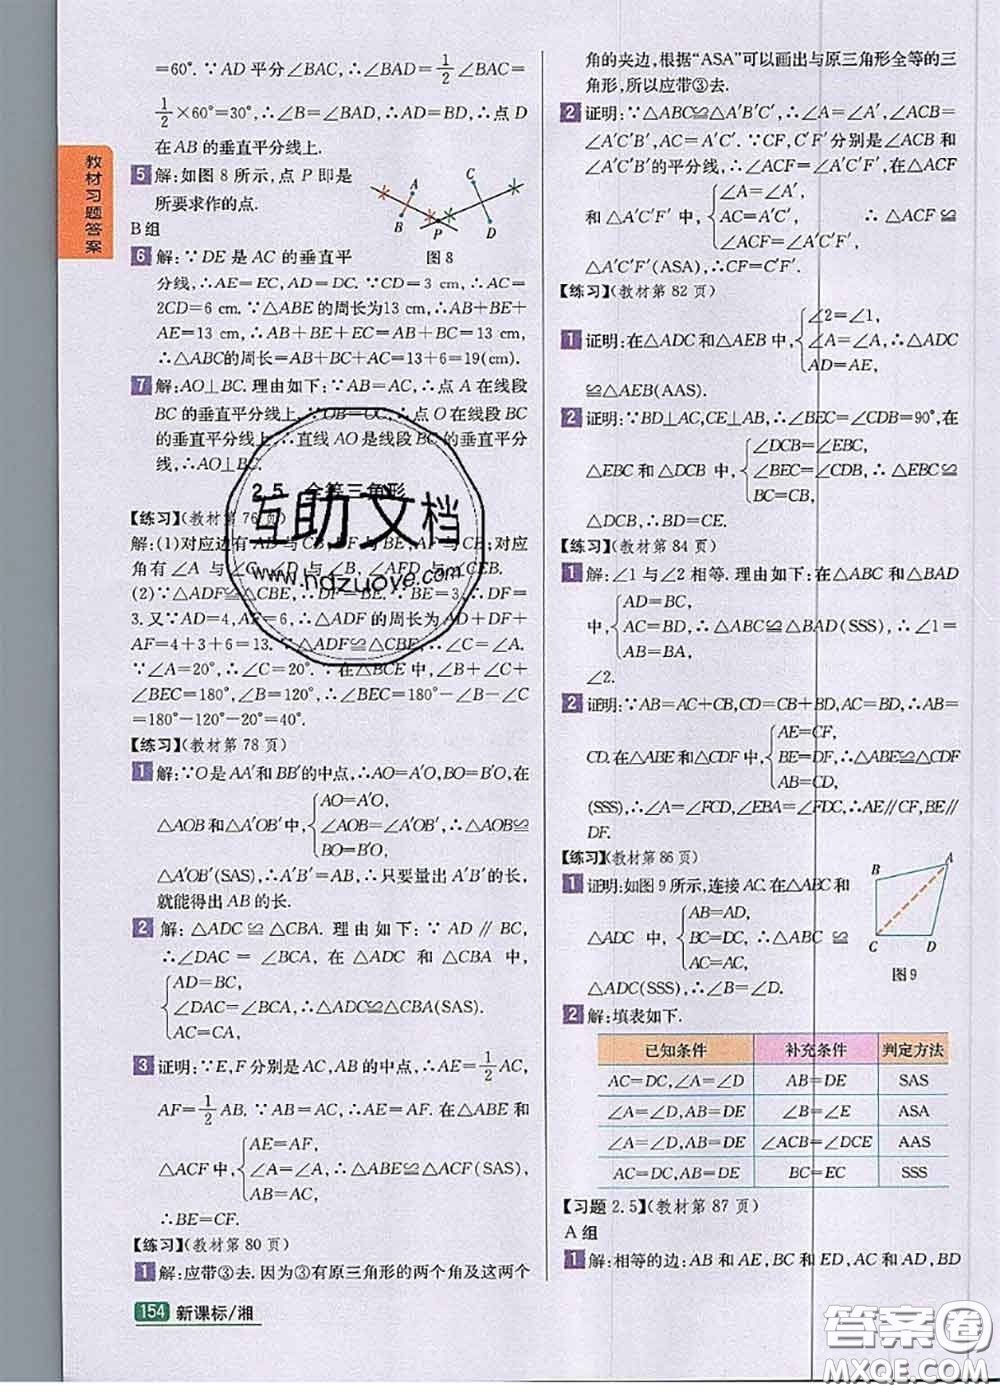 教材习题答案
=60°.∵AD平分∠BAC,∴∠BAD=1/2∠BAC=
1/2×60°=30°,∴∠B=∠BAD,∴AD=BD,∴点D
在AB的垂直平分线上.
5 解:如图8所示,点P即是
所要求作的点.
A
B
P
C
D
图8
B组
6 解:∵DE是AC的垂直平
分线,∴AE=EC,AD=DC.∵CD=3 cm,∴AC=
2CD=6 cm.∵△ABE的周长为13 cm,∴AB+BE+
AE=13 cm,∴AB+BE+EC=AB+BC=13 cm,
∴△ABC的周长=AB+BC+AC=13+6=19(cm).
7 解:AO⊥BC.理由如下:∵AB=AC,∴点A在线段
BC的垂直平分线上.∵OB=OC,∴点O在线段BC
的垂直平分线上,∴直线AO是线段BC的垂直平分
线,∴AO⊥BC.
2.5 全等三角形
【练习】(教材第76页)
解:(1)对应边有AD与CB,DF与BE,AF与CE;对应
角有∠A与∠C,∠D与∠B,∠AFD与∠CEB.
(2)∵△ADF≌△CBE,∴DF=BE.∵BE=3,∴DF=
3.又∵AD=4,AF=6,∴△ADF的周长为AD+DF+
AF=4+3+6=13.∵△ADF≌△CBE,∴∠A=∠C.
∵∠A=20°,∴∠C=20°.∵在△BCE中,∠B+∠C+
∠BEC=180°,∠B=120°,∴∠BEC=180°-∠B-∠C
=180°-120°-20°=40°.
【练习】(教材第78页)
1 解:∵O是AA′和BB′的中点,∴AO=A′O,BO=B′O,在
△AOB和△A′OB′中,{AO=A′O,
∠AOB=∠A′OB′,∴△AOB≌
BO=B′O,
△A′OB′(SAS),∴AB=A′B′,∴只要量出A′B′的长,
就能得出AB的长.
2 解:△ADC≌△CBA.理由如下:∵AD∥BC,
∴∠DAC=∠BCA,在△ADC和△CBA中,
{AD=BC,
∠DAC=∠BCA,∴△ADC≌△CBA(SAS).
AC=CA,
3 证明:∵E,F分别是AC,AB的中点,∴AE=1/2AC,
AF=1/2AB.∵AB=AC,∴AE=AF.在△ABE和
△ACF中,{AE=AF,
∠A=∠A,∴△ABE≌△ACF(SAS),
AB=AC,
∴BE=CF.
【练习】(教材第80页)
1 解:应带③去.因为③有原三角形的两个角及这两个
154 新课标/湘
角的夹边,根据“ASA”可以画出与原三角形全等的三
角形,所以应带③去.
2 证明:∵△ABC≌△A′B′C′,∴∠A=∠A′,∠ACB=
∠A′C′B′,AC=A′C′.又∵CF,C′F′分别是∠ACB和
∠A′C′B′的平分线,∴∠ACF=∠A′C′F′,在△ACF
和△A′C′F′中,{∠A=∠A′,
AC=A′C′, ∴△ACF≌
∠ACF=∠A′C′F′,
△A′C′F′(ASA),∴CF=C′F′.
【练习】(教材第82页)
1 证明:在△ADC和△AEB中,{∠2=∠1,
∠A=∠A,∴△ADC
AD=AE,
≌△AEB(AAS).
2 证明:∵BD⊥AC,CE⊥AB,∴∠BEC=∠CDB=90°,在
△EBC和△DCB中,{∠DCB=∠EBC,
∠CDB=∠BEC,∴△EBC≌
BC=CB,
△DCB,∴BD=CE.
【练习】(教材第84页)
1 解:∠1与∠2相等.理由如下:在△ABC和△BAD
中,{AD=BC,
AC=BD,∴△ABC≌△BAD(SSS),∴∠1=
AB=BA,
∠2.
2 证明:∵AB=AC+CB,CD=CB+BD,AC=BD,∴AB=
CD.在△ABE和△CDF中,{AE=CF,
BE=DF,∴△ABE≌△CDF
AB=CD,
(SSS),∴∠A=∠FCD,∠EBA=∠FDC,∴AE∥CF,BE∥
DF.
【练习】(教材第86页)
1 证明:如图9所示,连接AC.在△ABC和
△ADC中,{AB=AD,
BC=DC,∴△ABC≌
AC=AC,
△ADC(SSS),∴∠B=∠D.
A
B
C
D
图9
2 解:填表如下.
已知条件 补充条件 判定方法
AC=DC,∠A=∠D AB=DE SAS
∠A=∠D,AB=DE ∠B=∠E ASA
∠A=∠D,AB=DE ∠ACB=∠DCE AAS
AC=DC,AB=DE BC=EC SSS
【习题2.5】(教材第87页)
A组
1 解:相等的边:AB和AE,BC和ED,AC和AD,BD
互助文档
www.hdzuoye.com
答案圈
MXQE.COM